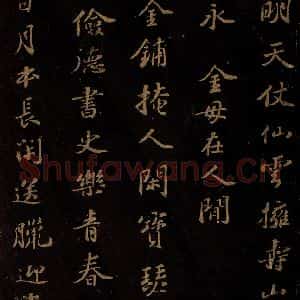 明天仗仙雲擁壽山
永 金母在人間
金鋪掩人閑寶瑟
儉德書史樂青春
月本長閏送臘迎
Shufawang.Cn